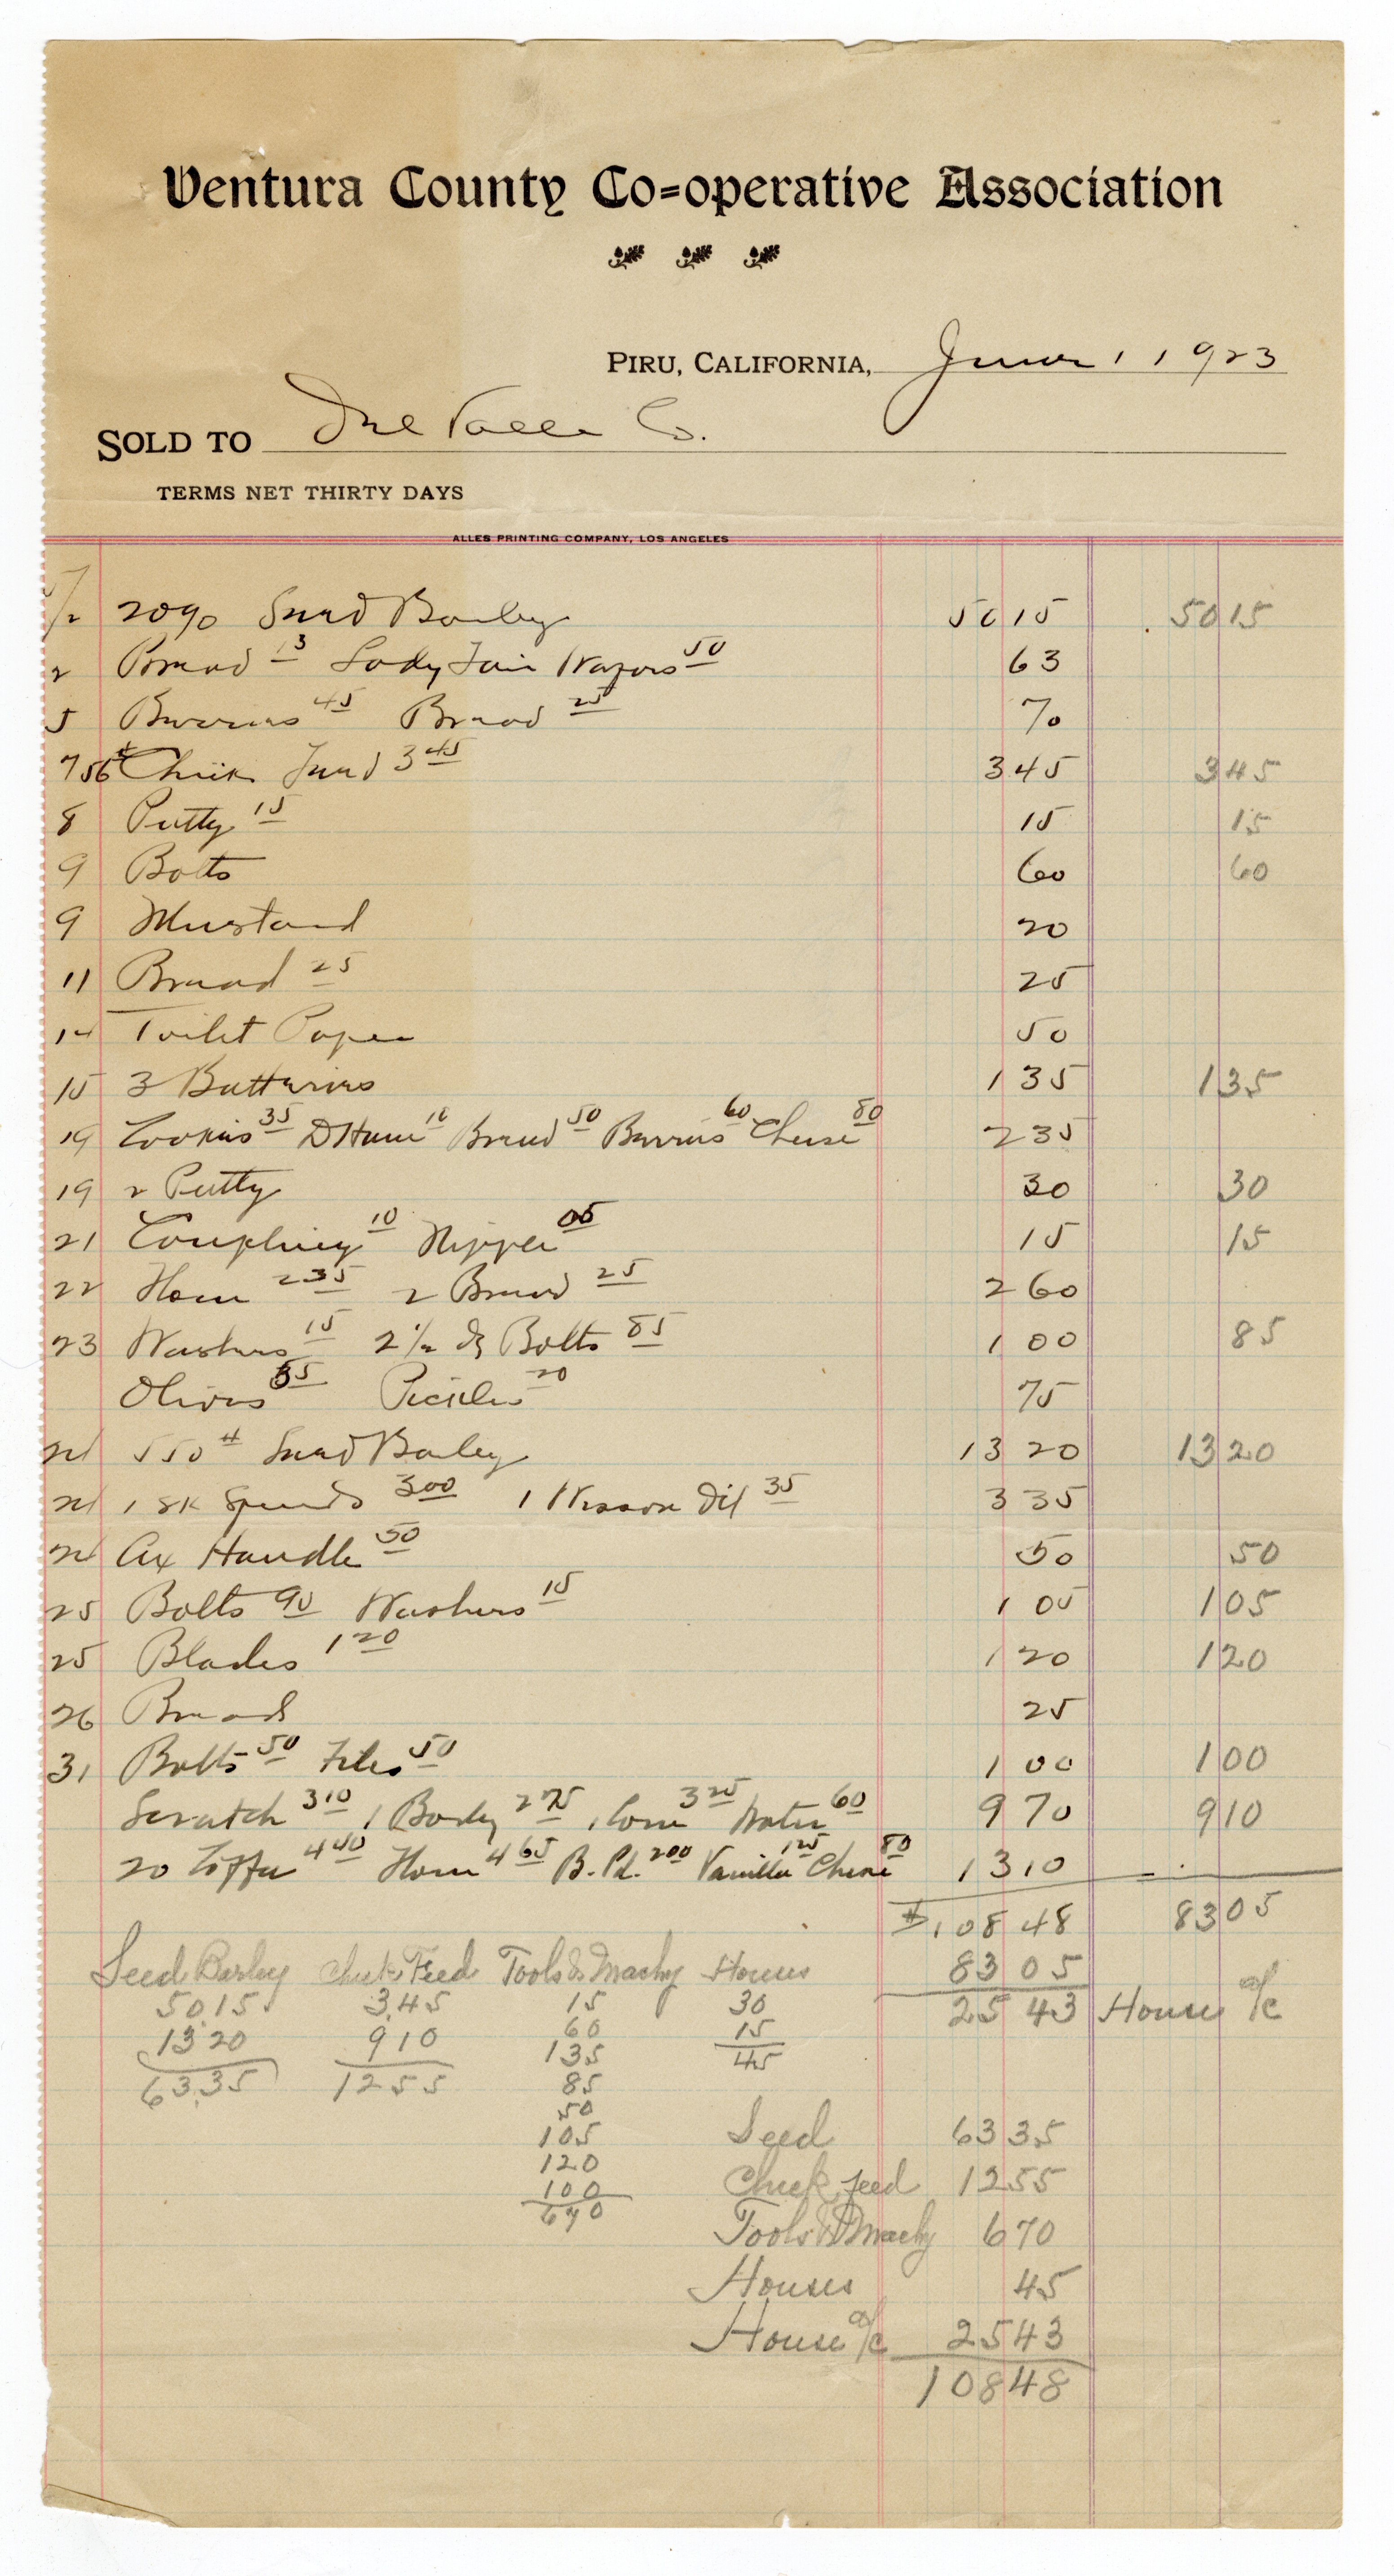 Ventura County Co=operative Association
PIRU, CALIFORNIA, 1 1923
SOLD TO Del Valle Co.
TERMS NET THIRTY DAYS
ALLES PRINTING COMPANY, LOS ANGELES
1/2 2090 Seed Barley 50 15 50 15
2 Bread 13 Lady Fair Wafers 50 63
5 Berries 45 Bread 25 70
7 56# Chick Feed 3 45 3 45 3 45
8 Putty 15 15 15
9 Bolts 60 60
9 Mustard 20
11 Bread 25 25
14 Toilet Paper 50
15 3 Batteries 1 35 1 35
19 Cookies 35 D Ham 10 Bread 50 Berries 60 Cheese 80 2 35
19 2 Putty 30 30
21 Coupling 10 Nipple 05 15 15
22 Ham 2 35 2 Bread 25 2 60
23 Washers 15 2 1/2 dz Bolts 85 1 00 85
Olives 55 Pickles 20 75
24 550# Seed Barley 13 20 13 20
24 1 sk Spuds 3 00 1 Wesson Oil 35 3 35
24 Ax Handle 50 50 50
25 Bolts 90 Washers 15 1 05 1 05
25 Blades 1 20 1 20 1 20
26 Bread 25
31 Bolts 50 Files 50 1 00 1 00
Scratch 3 10 1 Barley 2 75 1 Corn 3 25 60 9 70 9 10
20 Coffee 4 40 Ham 4 65 B. Pd. 2 00 Vanilla 1 25 Cheese 80 13 10
$108 48 83 05
Seed Barley Chick Feed Tools & Machy Houses 83 05
50.15 3.45 15 30 25 43 House a/c
13 20 9 10 60 15
63.35 12 55 1 35 45
85
50
1 05 Seed 63 35
1 20 Chick feed 12 55
1 00
6 70 Tools & Machy 6 70
Houses 45
House a/c 25 43
108 48